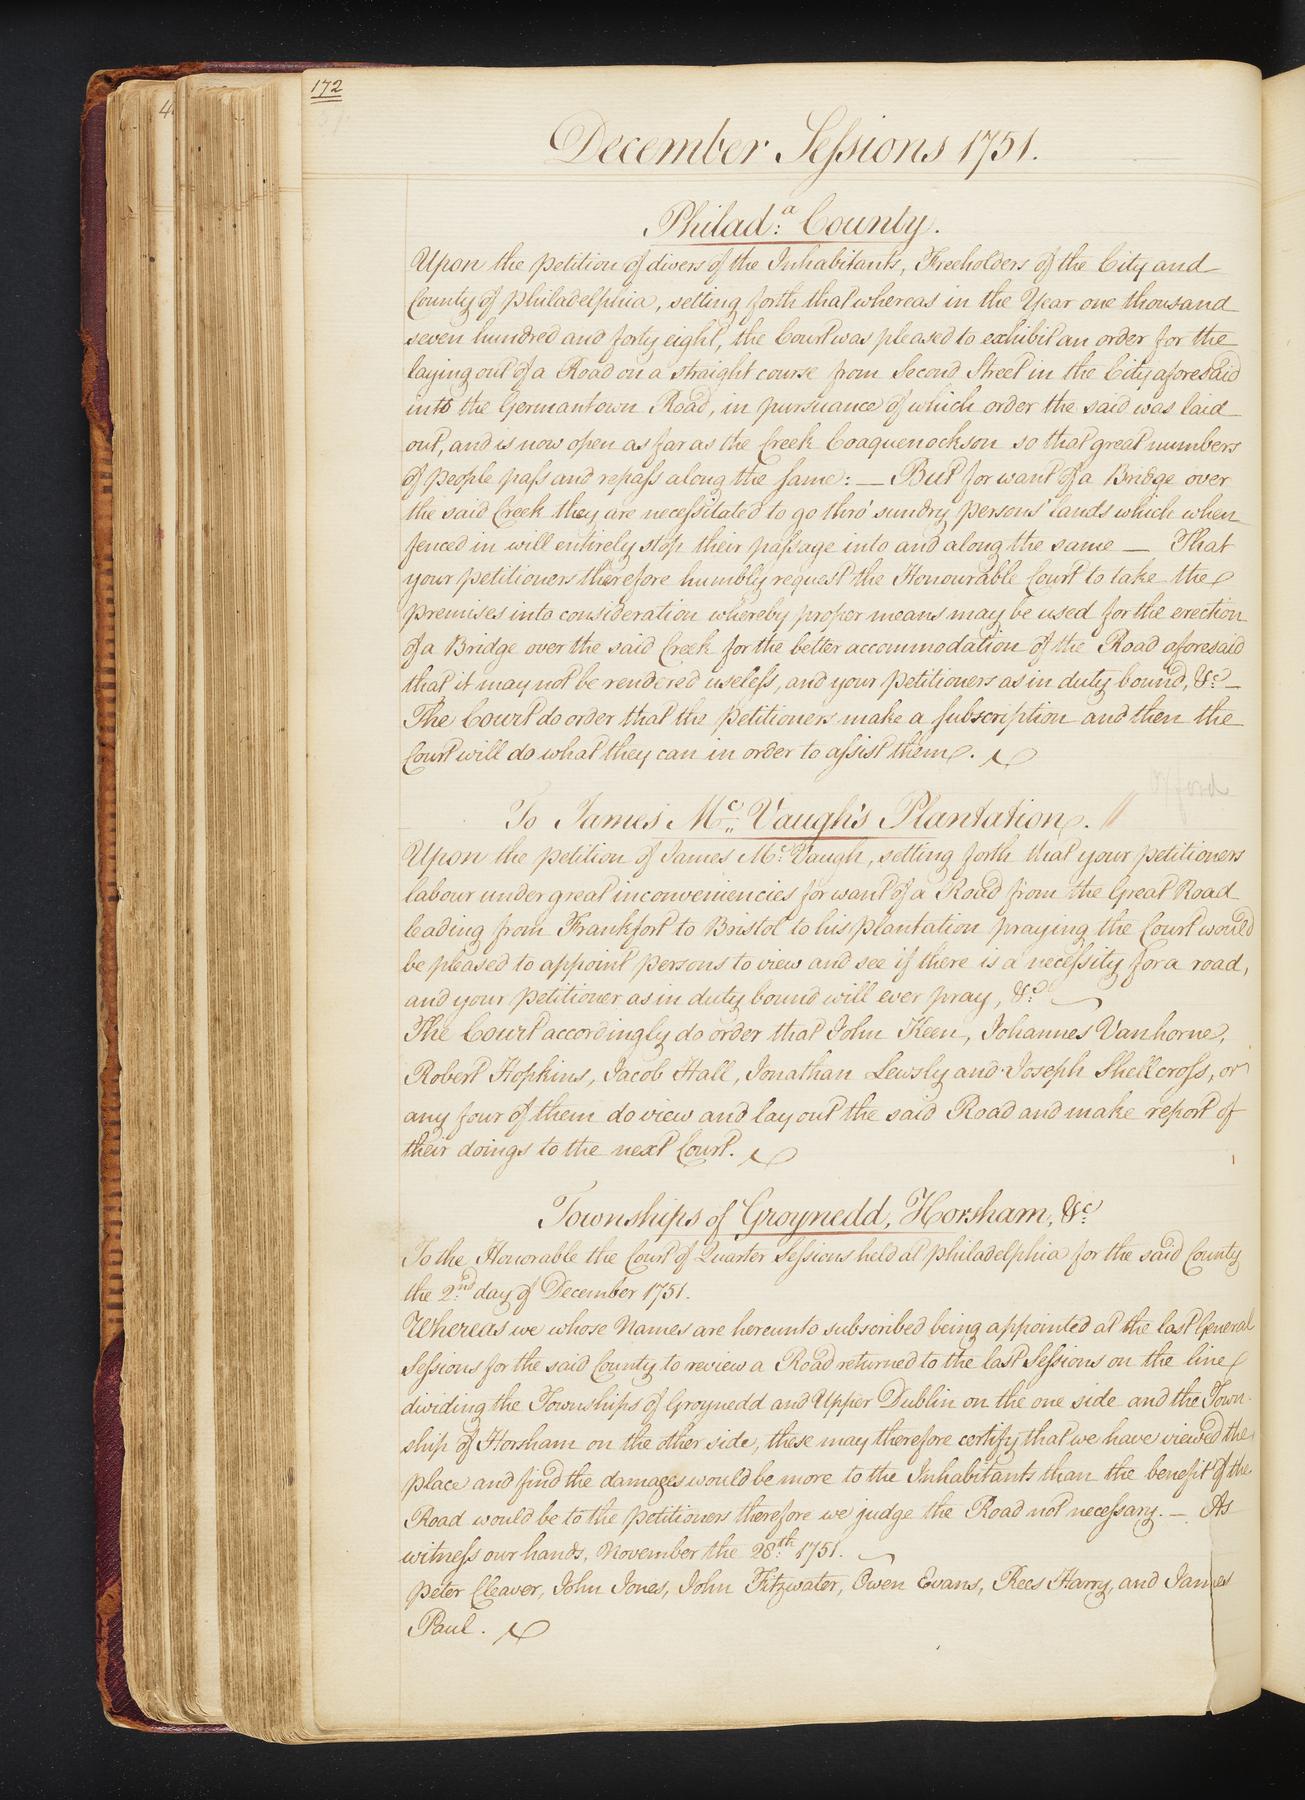 172
December Sessions 1751.
Philad:ª County.
Upon the petition of divers of the Inhabitants, Freeholders of the City and
County of Philadelphia, setting forth that whereas in the Year one thousand
seven hundred and forty eight, the Court was pleased to exhibit an order for the
laying out of a Road on a straight course from Second Street in the City aforesaid
into the Germantown Road, in pursuance of which order the said was laid
out, and is now open as far as the Creek Coaquenockson so that great numbers
of people pass and repass along the same: — But for want of a Bridge over
the said Creek they are necessitated to go thro' sundry persons' lands which when
fenced in will entirely stop their passage into and along the same — That
your petitioners therefore humbly request the Honourable Court to take the
premises into consideration whereby proper means may be used for the erection
of a Bridge over the said Creek for the better accommodation of the Road aforesaid
that it may not be rendered useless, and your petitioners as in duty bound, &c —
The Court do order that the petitioners make a subscription and then the
Court will do what they can in order to assist them.
To James Mc Vaugh's Plantation.
Upon the petition of James Mc Vaugh, setting forth that your petitioners
labour under great inconveniencies for want of a Road from the Great Road
leading from Frankfort to Bristol to his plantation praying the Court would
be pleased to appoint persons to view and see if there is a necessity for a road,
and your petitioner as in duty bound will ever pray, &c
The Court accordingly do order that John Keen, Johannes Vanhorne,
Robert Hopkins, Jacob Hall, Jonathan Lewsly and Joseph Shellcross, or
any four of them do view and lay out the said Road and make report of
their doings to the next Court.
Townships of Groynedd, Horsham, &c
To the Honorable the Court of Quarter Sessions held at Philadelphia for the said County
the 2nd day of December 1751.
Whereas we whose Names are hereunto subscribed being appointed at the last General
Sessions for the said County to review a Road returned to the last Sessions on the line
dividing the Townships of Groynedd and Upper Dublin on the one side and the Town-
ship of Horsham on the other side, these may therefore certify that we have viewed the
place and find the damages would be more to the Inhabitants than the benefit of the
Road would be to the petitioners therefore we judge the Road not necessary. — As
witness our hands, November the 28th 1751.
Peter Cleaver, John Jones, John Fitzwater, Owen Evans, Rees Harry, and James
Paul.